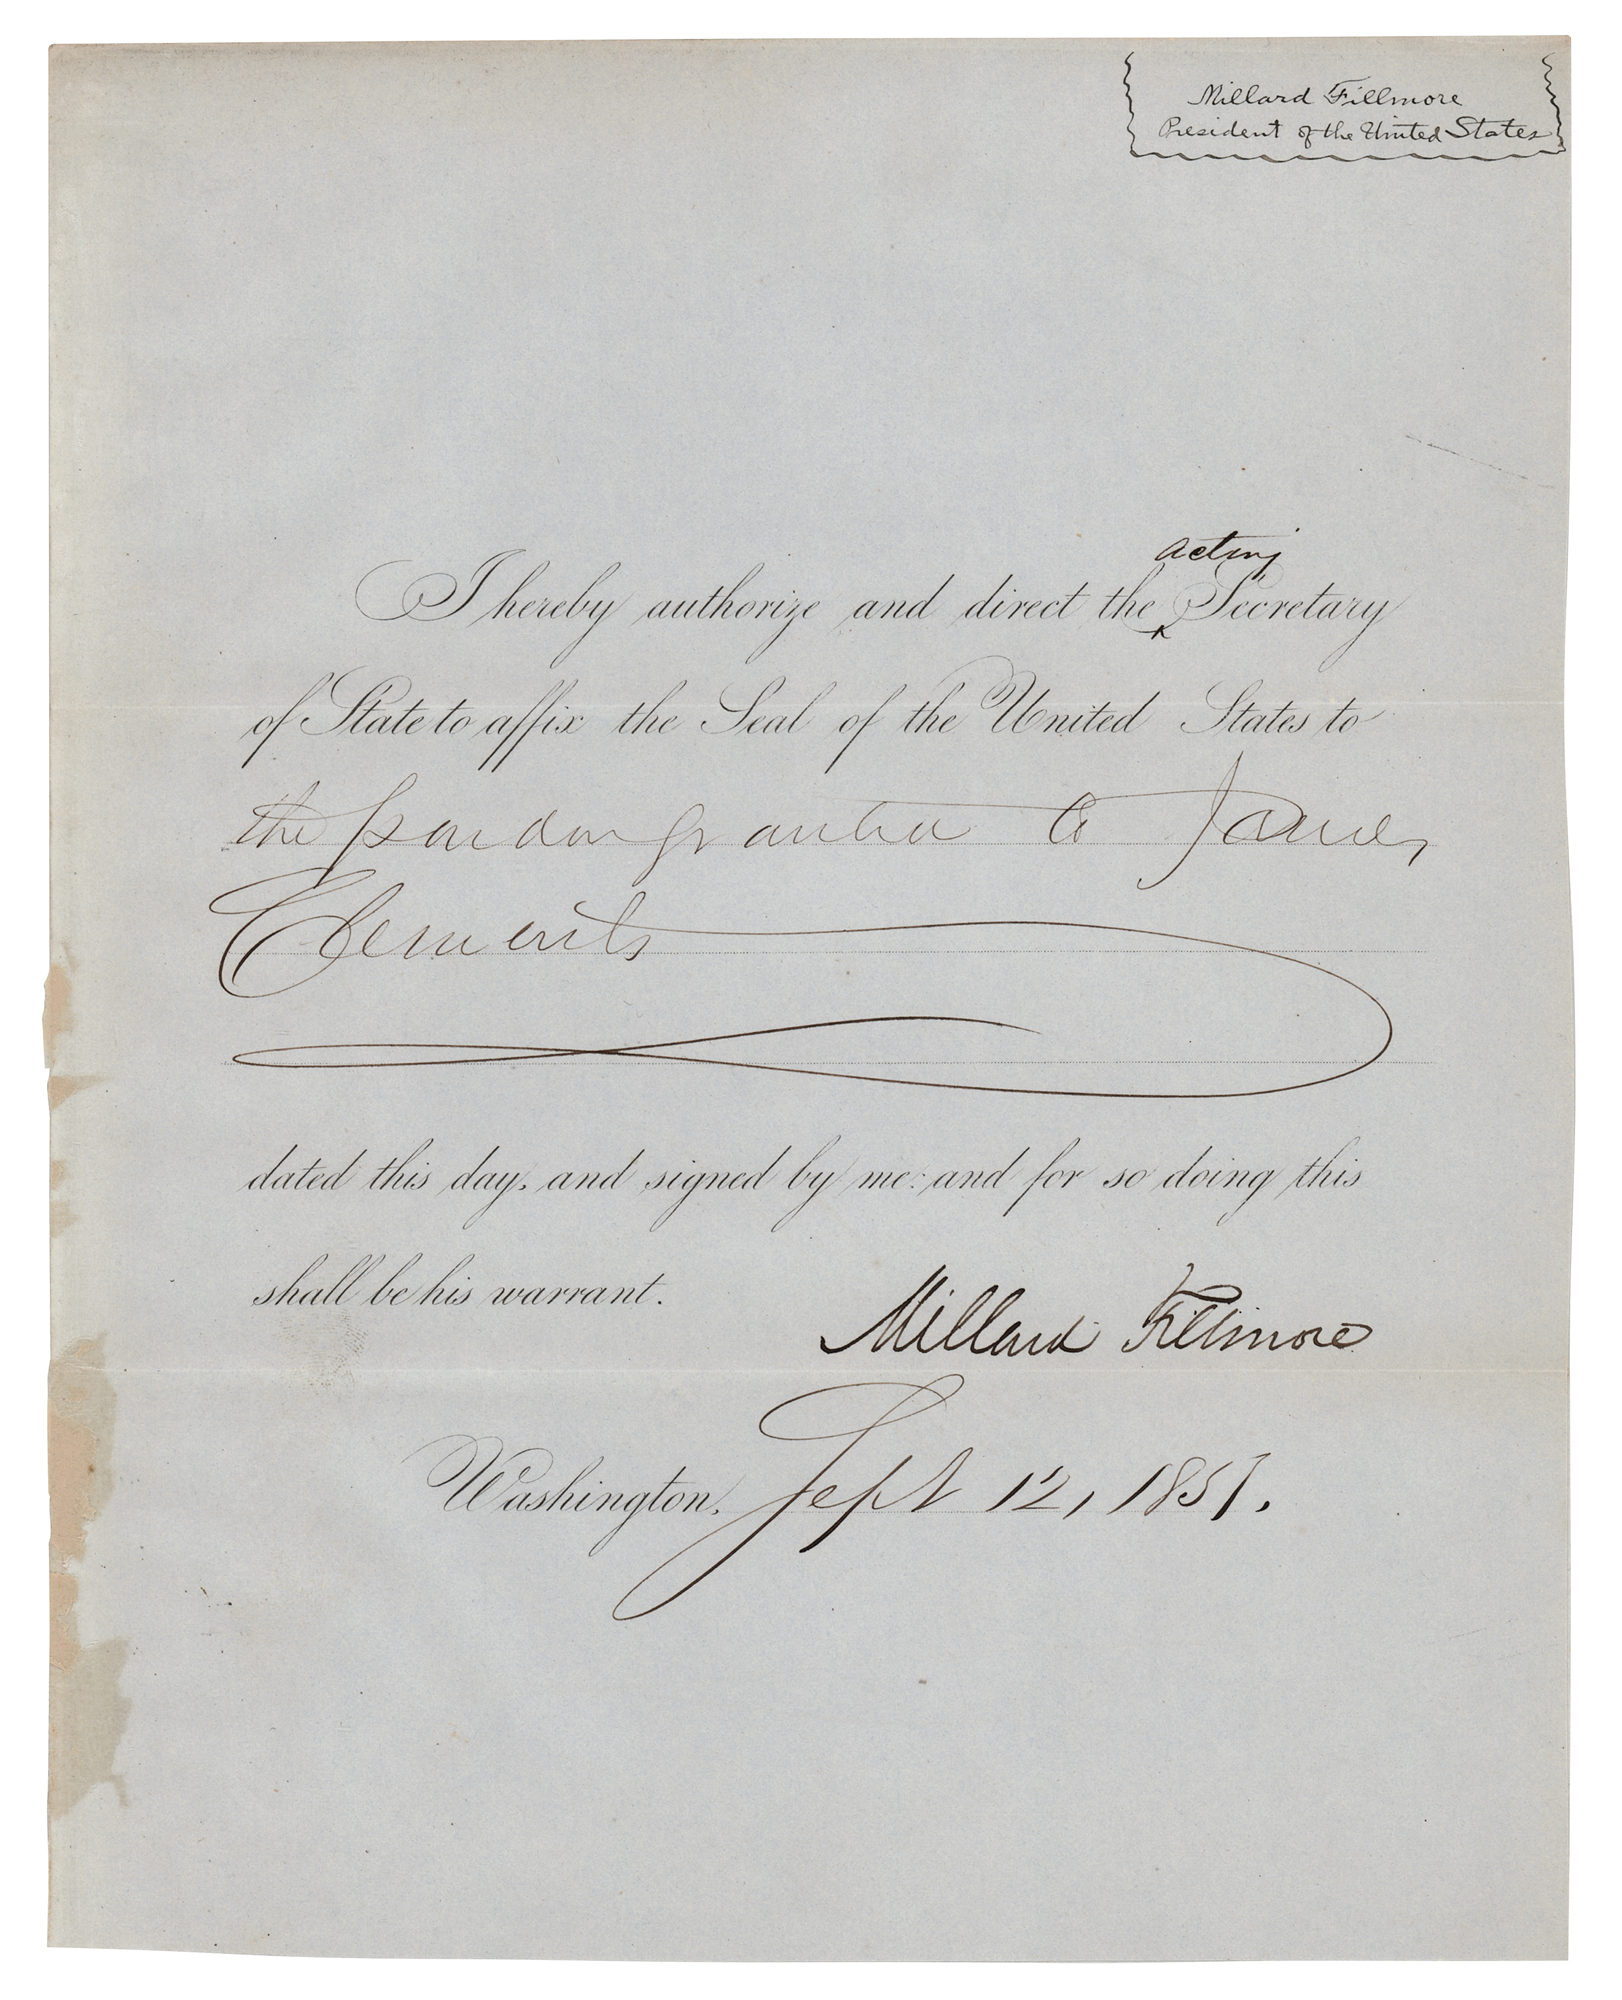 Millard Fillmore
President of the United States
acting
I hereby authorize and direct the ‸ Secretary
of State to affix the Seal of the United States to
the pardon granted to James
Clements
dated this day, and signed by me: and for so doing this
shall be his warrant.
Millard Fillmore
Washington, Sept 12, 1851.